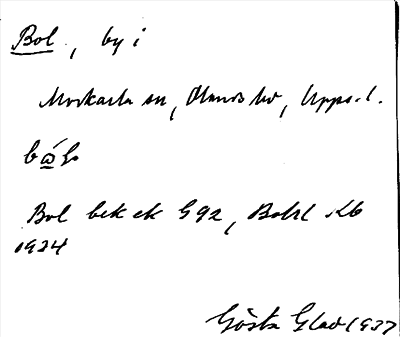 Bol, by i
Morkarla sn, Olands hd, Upps. l.
Bol bek ek 592, Bohl Kb
1934
Gösta Glad 1937